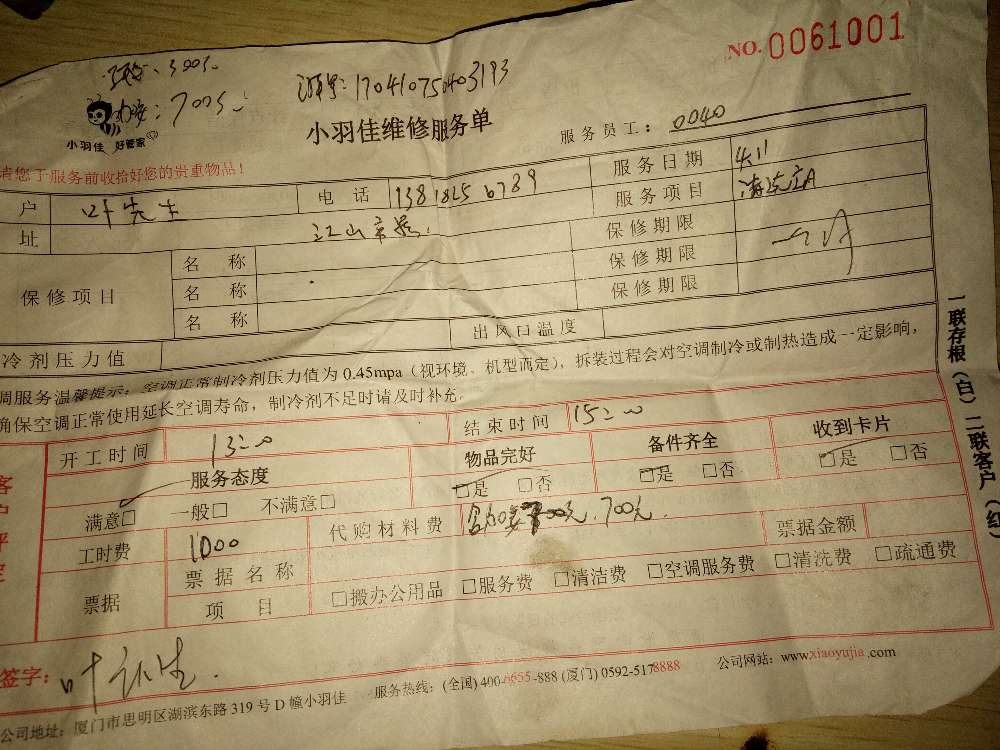 NO. 0061001
300元
源单号:17041075403193
:700元
小羽佳 好管家
小羽佳维修服务单
服务员工: 0040
请您于服务前收拾好您的贵重物品!
户 叶先生 电话 13818256789 服务日期 4.11
址 江山帝景. 服务项目 清洗空A
保修项目 名称 保修期限
名称 保修期限
名称 保修期限
冷剂压力值 出风口温度
调服务温馨提示:空调正常制冷剂压力值为0.45mpa(视环境、机型而定),拆装过程会对空调制冷或制热造成一定影响,
确保空调正常使用延长空调寿命,制冷剂不足时请及时补充。
开工时间 13:00 结束时间 15:00
服务态度 物品完好 备件齐全 收到卡片
满意□ 一般□ 不满意□ □是 □否 □是 □否 □是 □否
工时费 1000 代购材料费 700元. 票据金额
票据 票据名称
项目 □搬办公用品 □服务费 □清洁费 □空调服务费 □清洗费 □疏通费
签字: 叶先生.
公司地址:厦门市思明区湖滨东路319号D幢小羽佳 服务热线:(全国)400-6655-888 (厦门)0592-5178888 公司网站:www.xiaoyujia.com
一联存根(白) 二联客户(红)